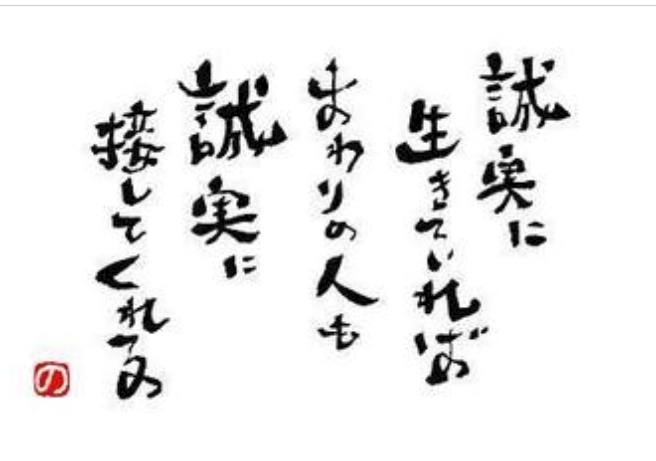 誠実に
生きていれば
まわりの人も
誠実に
接してくれる
の